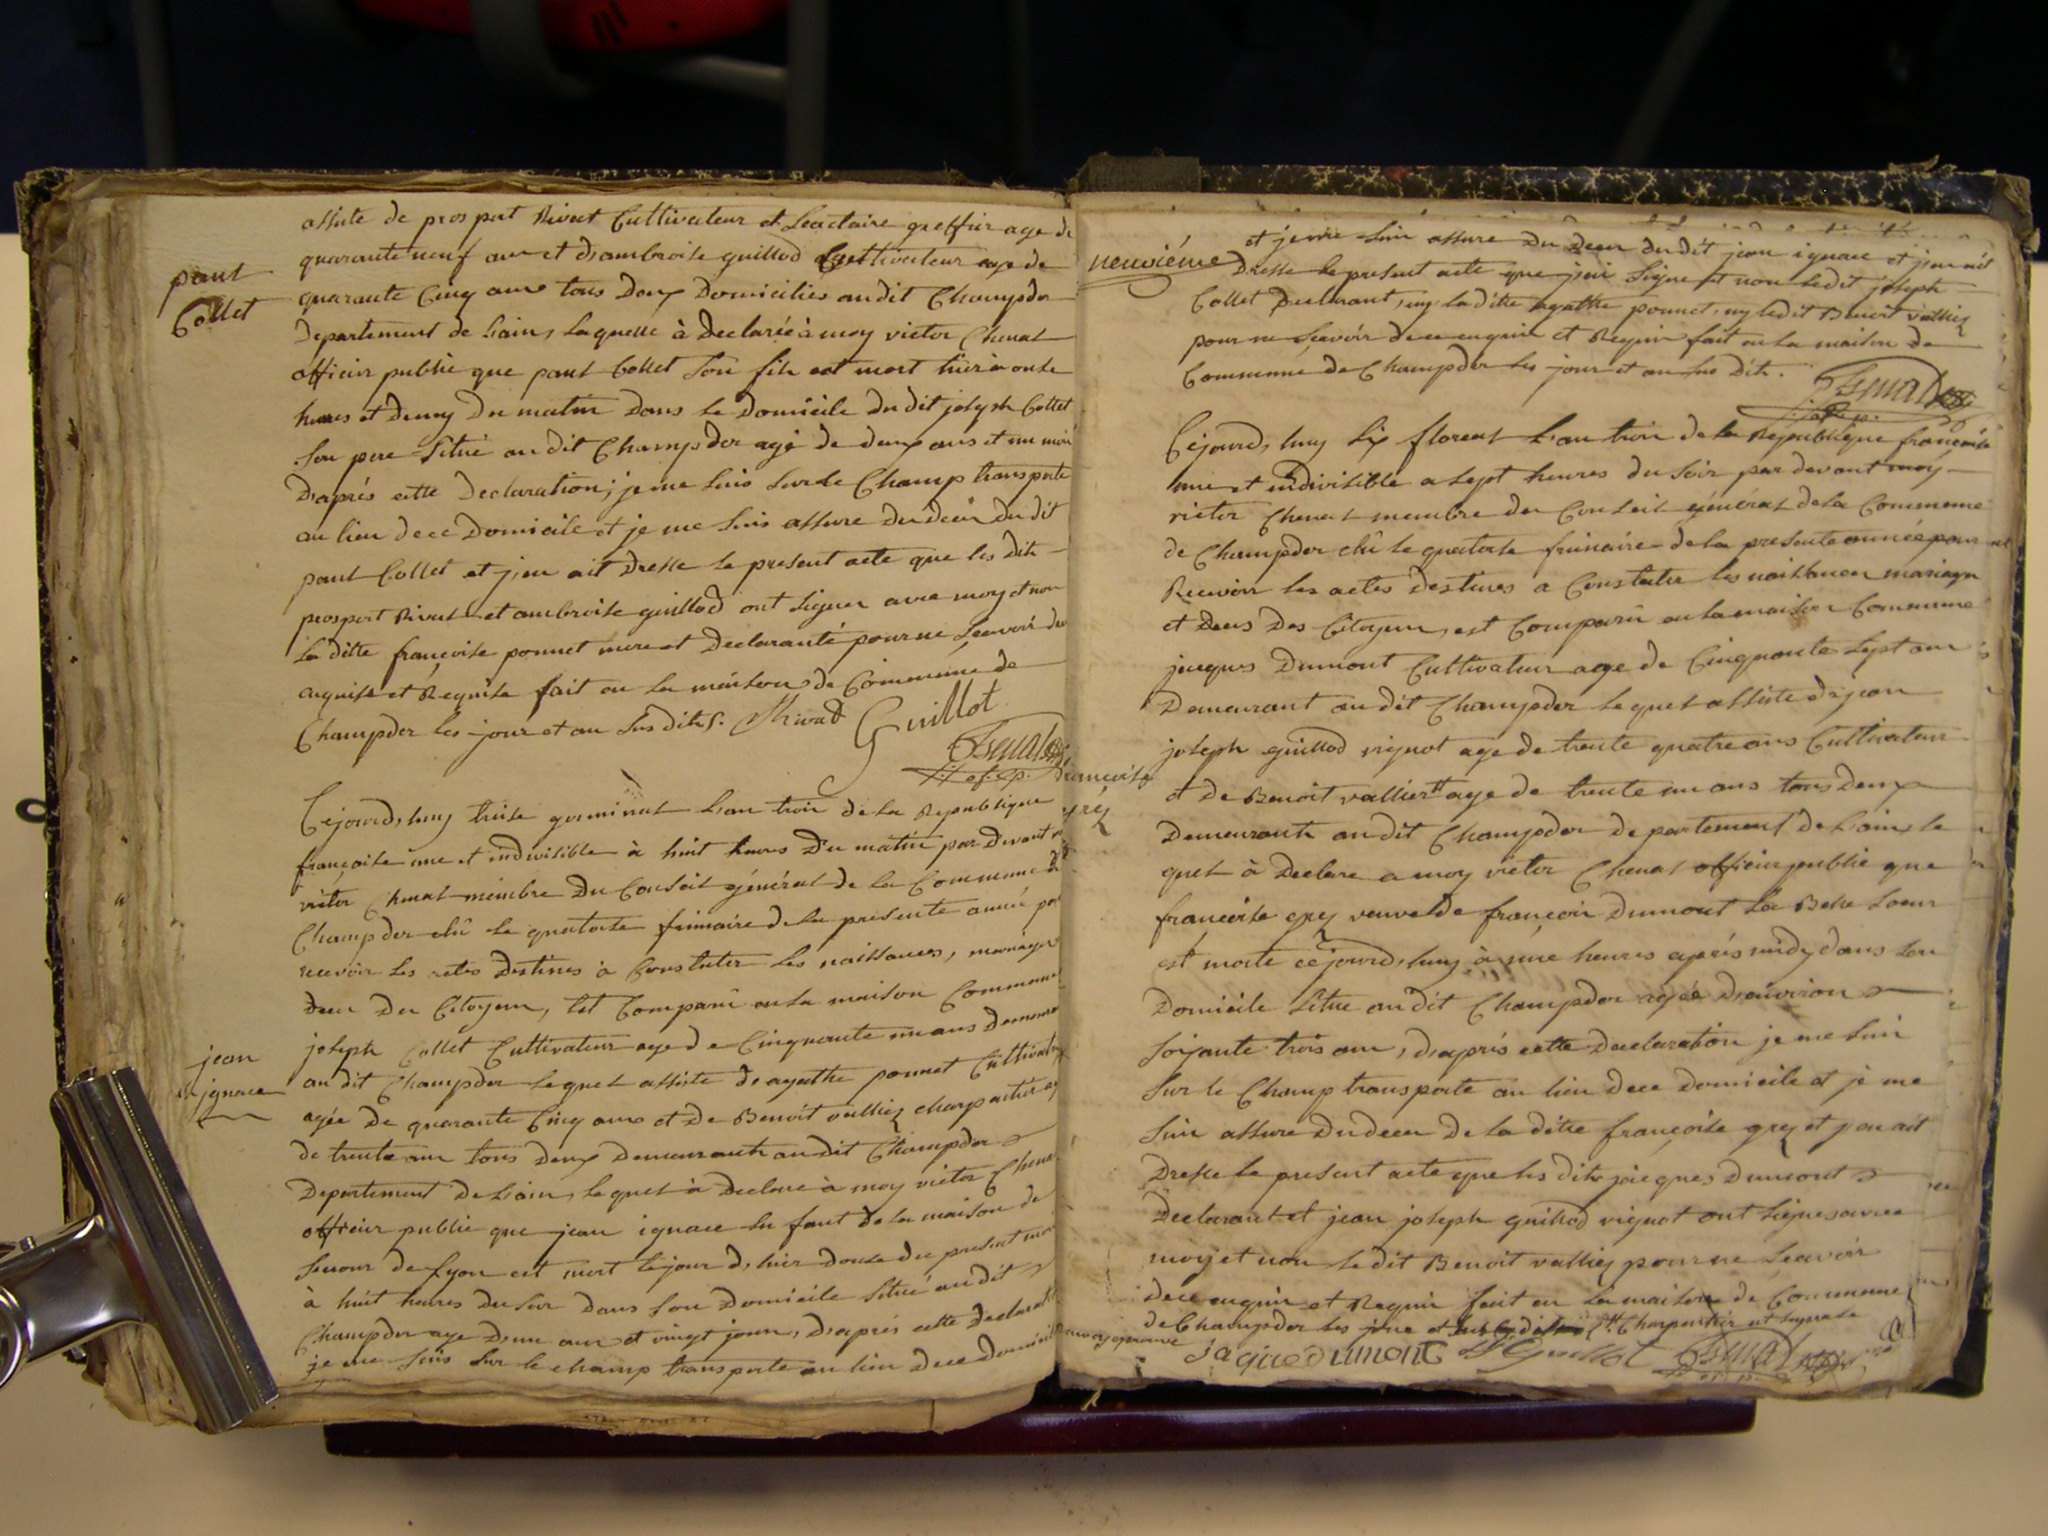 assiste de prospert Rivat Cultivateur et secretaire greffier age de
quarante neuf ans et d'ambroise guillod Cultivateur age de
paul
Collet
quarante Cinq ans tous Deux Domicilies audit Champdor
Departement de Lain, laquelle à Declarée à moy victor Chenat
officier public que paul Collet Son fils est mort hier à onse
heures et Demy Du matin Dans le Domicile Du dit joseph Collet
Son pere Situé au dit Champdor agé de deux ans et un moi
D'aprés cette Declaration; je me suis sur le Champ transporte
au lieu de ce Domicile et je me suis assure du deces du dit
paul Collet et j'en ait Dresse le present acte que les dits
prospert Rivat et ambroise guillod ont signer avec moy et non
La ditte françoise ponnet mere et Declarante pour ne Scavoir de
enquise et Requise fait en la maison de Commune de
Champdor les jour et an Sus dits. Rivat Guillot
Chenat
Cejourd,huy treise germinal L'an trois de la Republique
françoise une et indivisible à huit heures Du matin par Devant
victor Chenat membre Du Conseil général de la Commune de
Champdor elû le quatorse frimaire de la présente année pour
recevoir les actes Destines à Constater les naissances, mariages
Deces Des Citoyens, Est Comparû en la maison Commune
jean
ignace
joseph Collet Cultivateur age de Cinquante un ans Demeurant
au dit Champdor lequel assiste de agathe ponnet Cultivatrice
agée de quarante Cinq ans et de Benoit vallier charpentier
de trente ans tous Deux Demeurants audit Champdor
Departement De Lain, lequel à Declare à moy victor Chenat
officier public que jean ignace enfant de la maison de
Secour de Lyon est mort le jour d,hier Douse du present mois
à huit heures Du Soir Dans Son Domicile Situé audit
Champdor age D'un ans et vingt jours, D'aprés cette Declaration
je me Suis Sur le champ transporte au lieu de ce Domicile
neuvième
et je me suis assure Du Deces du dit jean ignace et j'en ait
Dresse le present acte que j'ai Signe et non ledit joseph
Collet Declarant, ny la ditte agathe ponnet, ny ledit Benoit vallier
pour ne Scavoir de ce enquis et Requis fait en la maison de
Commune de Champdor les jour et an Sus Dits.
Chenat
Cejourd,huy Six floreal L'an trois de la Republique françoise
une et indivisible a sept heures du Soir par devant moy
victor Chenat membre du Conseil général de la Commune
de Champdor elû le quatorse frimaire de la presente année pour
Recevoir les actes Destines a Constater les naissances mariages
et Deces Des Citoyens, est Comparû en la maison Commune
jacques Dumont Cultivateur age de Cinquante Sept ans
Demeurant au dit Champdor lequel assiste de jean
françoise
grey
joseph guillod vignot age de trente quatre ans Cultivateur
et de Benoit vallier age de trente un ans tous deux
Demeurants au dit Champdor departement de Lain, le
quel à Declare a moy victor Chenat officier public que
françoise grey veuve de françois Dumont La Belle Soeur
est morte cejourd,huy à une heures aprés midy dans Son
Domicile Situe au dit Champdor agée D'environ
Soixante trois ans, d'aprés cette Declaration je me Suis
Sur le Champ transporte au lieu de ce Domicile et je me
Suis assure Du deces De la ditte françoise grey et j'en ait
Dresse le present acte que les dits jacques Dumont
Declarant et jean joseph guillod vignot ont signes avec
moy et non ledit Benoit vallier pour ne Scavoir
de ce enquis et Requis fait en la maison de Commune
de Champdor les jour et Charpentier
jaque dumont Guillot Chenat